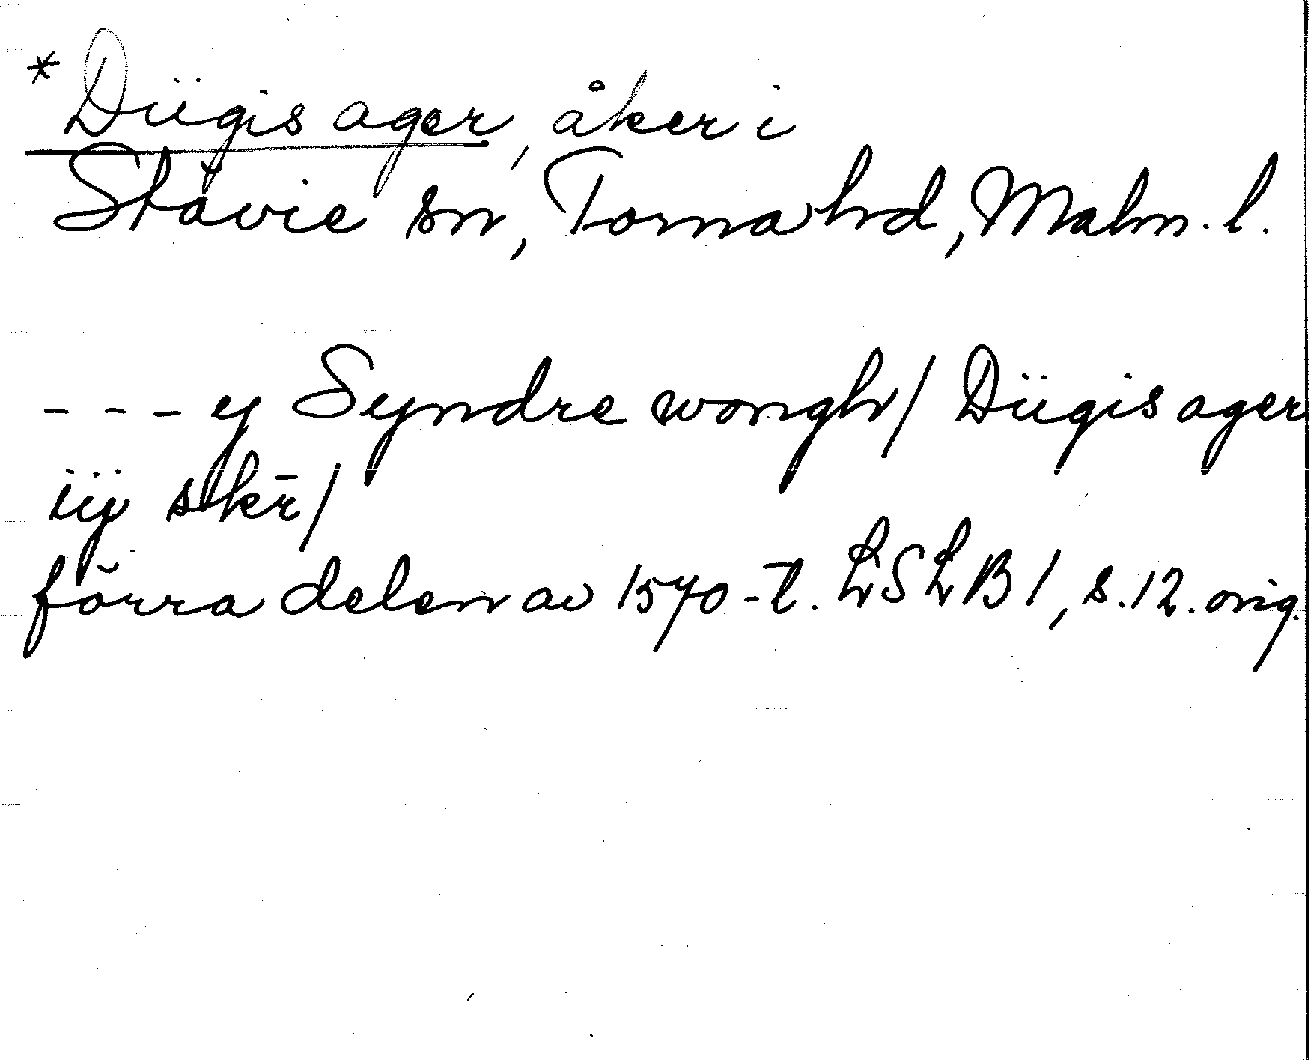 * Dügis ager, åker i
Stävie sn, Torna hd, Malm. l.
- - - ej Syndre wongh/ Dügis ager
iij skr̄/
förra delen av 1570-t. LSLB 1, s. 12. orig.